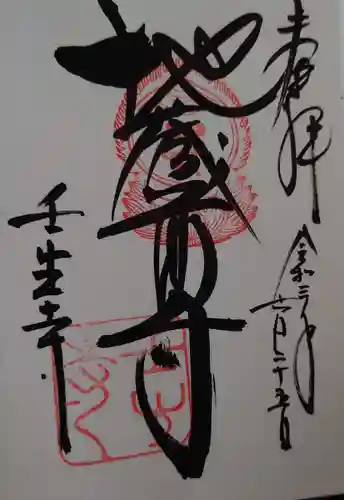 奉拝
令和三年
六月二十五日
地蔵尊
壬生寺